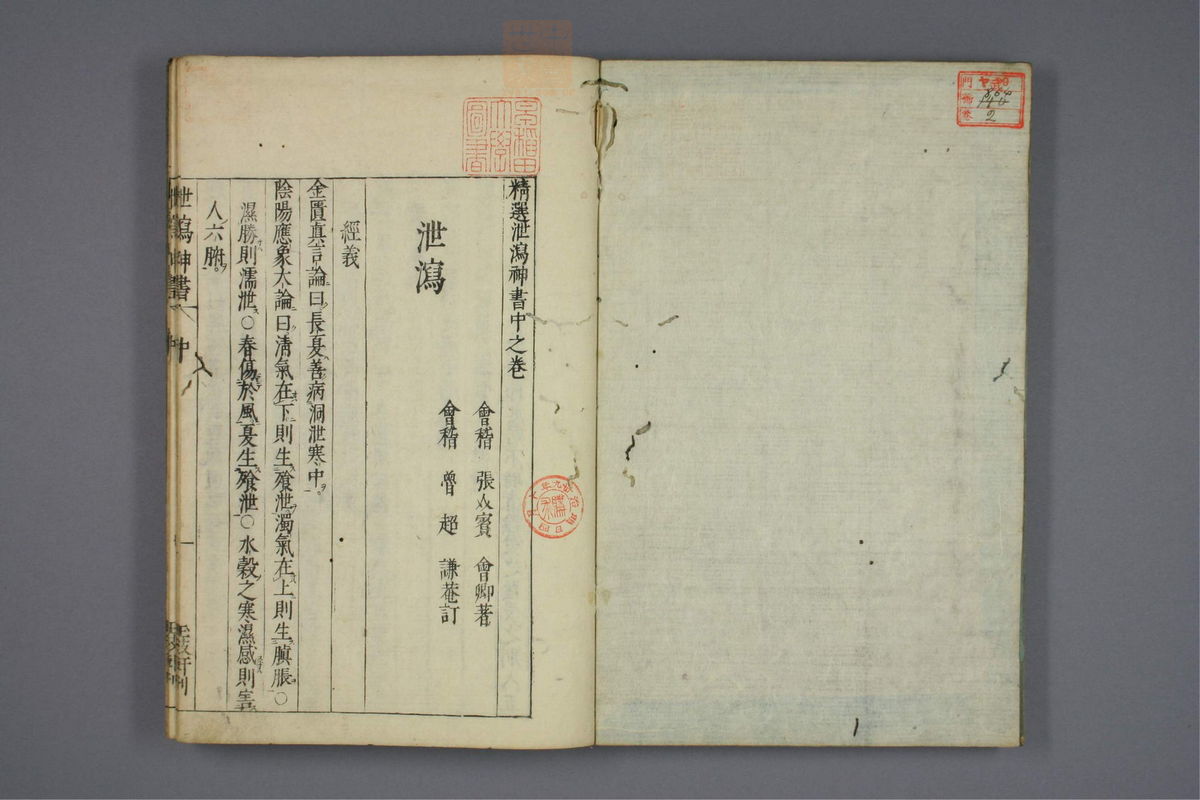 精選泄瀉神書中之卷
會稽 張 賓 會卿著
會稽 魯 超 謙菴訂
泄瀉
經義
金匱真言論曰長夏善病洞泄寒中
陰陽應象大論曰清氣在下則生飧泄濁氣在上則生䐜脹〇
濕勝則濡泄〇春傷於風夏生飧泄〇水穀之寒濕感則害
人六腑
泄瀉神書 中 一
早稻田
大學
圖書
門
號
卷 2